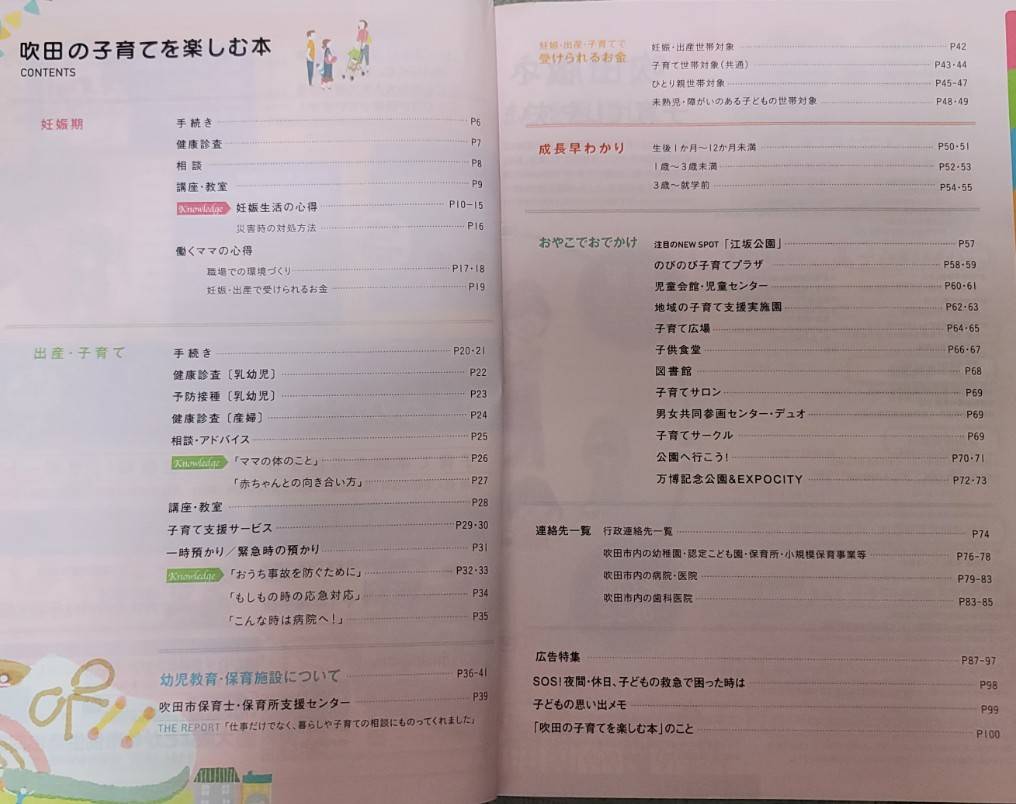 吹田の子育てを楽しむ本
CONTENTS
妊娠期
手続き P6
健康診査 P7
相談 P8
講座・教室 P9
Knowledge 妊娠生活の心得 P10-15
災害時の対処方法 P16
働くママの心得
職場での環境づくり P17・18
妊娠・出産で受けられるお金 P19
出産・子育て
手続き P20・21
健康診査〔乳幼児〕 P22
予防接種〔乳幼児〕 P23
健康診査〔産婦〕 P24
相談・アドバイス P25
Knowledge 「ママの体のこと」 P26
「赤ちゃんとの向き合い方」 P27
講座・教室 P28
子育て支援サービス P29・30
一時預かり／緊急時の預かり P31
Knowledge 「おうち事故を防ぐために」 P32・33
「もしもの時の応急対応」 P34
「こんな時は病院へ！」 P35
幼児教育・保育施設について P36-41
吹田市保育士・保育所支援センター P39
THE REPORT「仕事だけでなく、暮らしや子育ての相談にものってくれました」
妊娠・出産・子育てで
受けられるお金
妊娠・出産世帯対象 P42
子育て世帯対象(共通) P43・44
ひとり親世帯対象 P45-47
未熟児・障がいのある子どもの世帯対象 P48・49
成長早わかり
生後1か月〜12か月未満 P50・51
1歳〜3歳未満 P52・53
3歳〜就学前 P54・55
おやこでおでかけ
注目のNEW SPOT「江坂公園」 P57
のびのび子育てプラザ P58・59
児童会館・児童センター P60・61
地域の子育て支援実施園 P62・63
子育て広場 P64・65
子供食堂 P66・67
図書館 P68
子育てサロン P69
男女共同参画センター・デュオ P69
子育てサークル P69
公園へ行こう！ P70・71
万博記念公園&EXPOCITY P72・73
連絡先一覧
行政連絡先一覧 P74
吹田市内の幼稚園・認定こども園・保育所・小規模保育事業等 P76-78
吹田市内の病院・医院 P79-83
吹田市内の歯科医院 P83-85
広告特集 P87-97
SOS！夜間・休日、子どもの救急で困った時は P98
子どもの思い出メモ P99
「吹田の子育てを楽しむ本」のこと P100